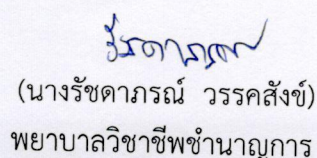 รัชดาภรณ์
(นางรัชดาภรณ์ วรรคสังข์)
พยาบาลวิชาชีพชำนาญการ